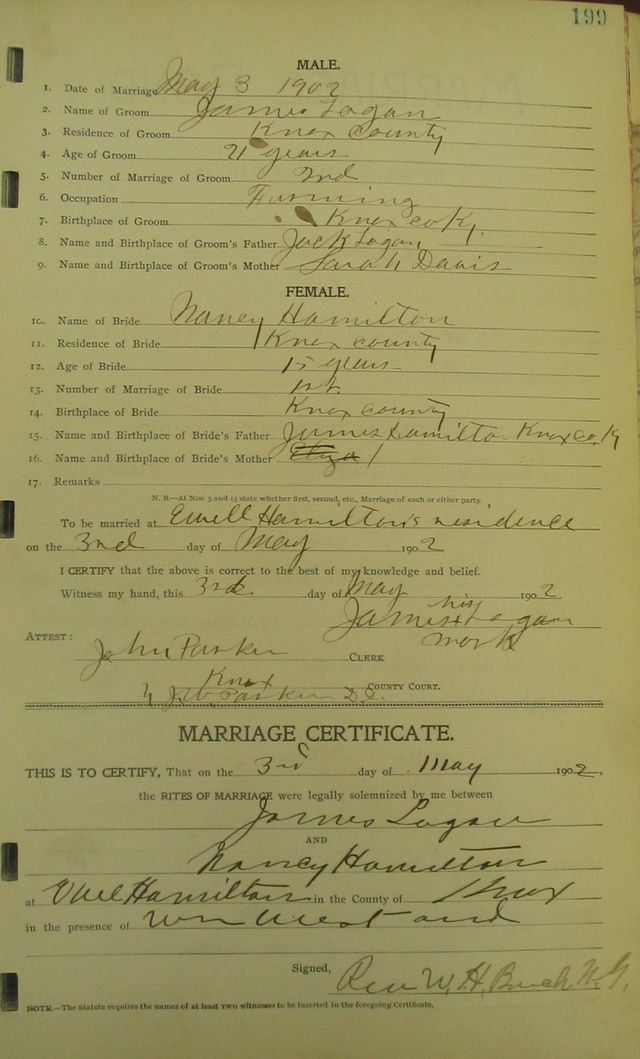 199
MALE.
1. Date of Marriage May 3 1902
2. Name of Groom James Logan
3. Residence of Groom Knox County
4. Age of Groom 21 years
5. Number of Marriage of Groom 2nd
6. Occupation Farming
7. Birthplace of Groom Knox co Ky.
8. Name and Birthplace of Groom's Father Jack Logan
9. Name and Birthplace of Groom's Mother Sarah Davis
FEMALE.
10. Name of Bride Nancy Hamilton
11. Residence of Bride Knox county
12. Age of Bride 15 years
13. Number of Marriage of Bride 1st
14. Birthplace of Bride Knox county
15. Name and Birthplace of Bride's Father James Hamilton Knox co. Ky
16. Name and Birthplace of Bride's Mother
17. Remarks
N. B.—At Nos. 5 and 13 state whether first, second, etc., Marriage of each or either party.
To be married at Ewell Hamilton's residence
on the 3rd day of May 1902
I CERTIFY that the above is correct to the best of my knowledge and belief.
Witness my hand, this 3rd day of May 1902
his
James x Logan
mark
ATTEST:
John Parker CLERK
Knox COUNTY COURT.
Parker D.C.
MARRIAGE CERTIFICATE.
THIS IS TO CERTIFY, That on the 3rd day of May 1902,
the RITES OF MARRIAGE were legally solemnized by me between
James Logan
AND
Nancy Hamilton
at Hamilton in the County of Knox
in the presence of Wm West and
Signed, Rev W. H. M. G.
NOTE.—The Statute requires the names of at least two witnesses to be inserted in the foregoing Certificate.